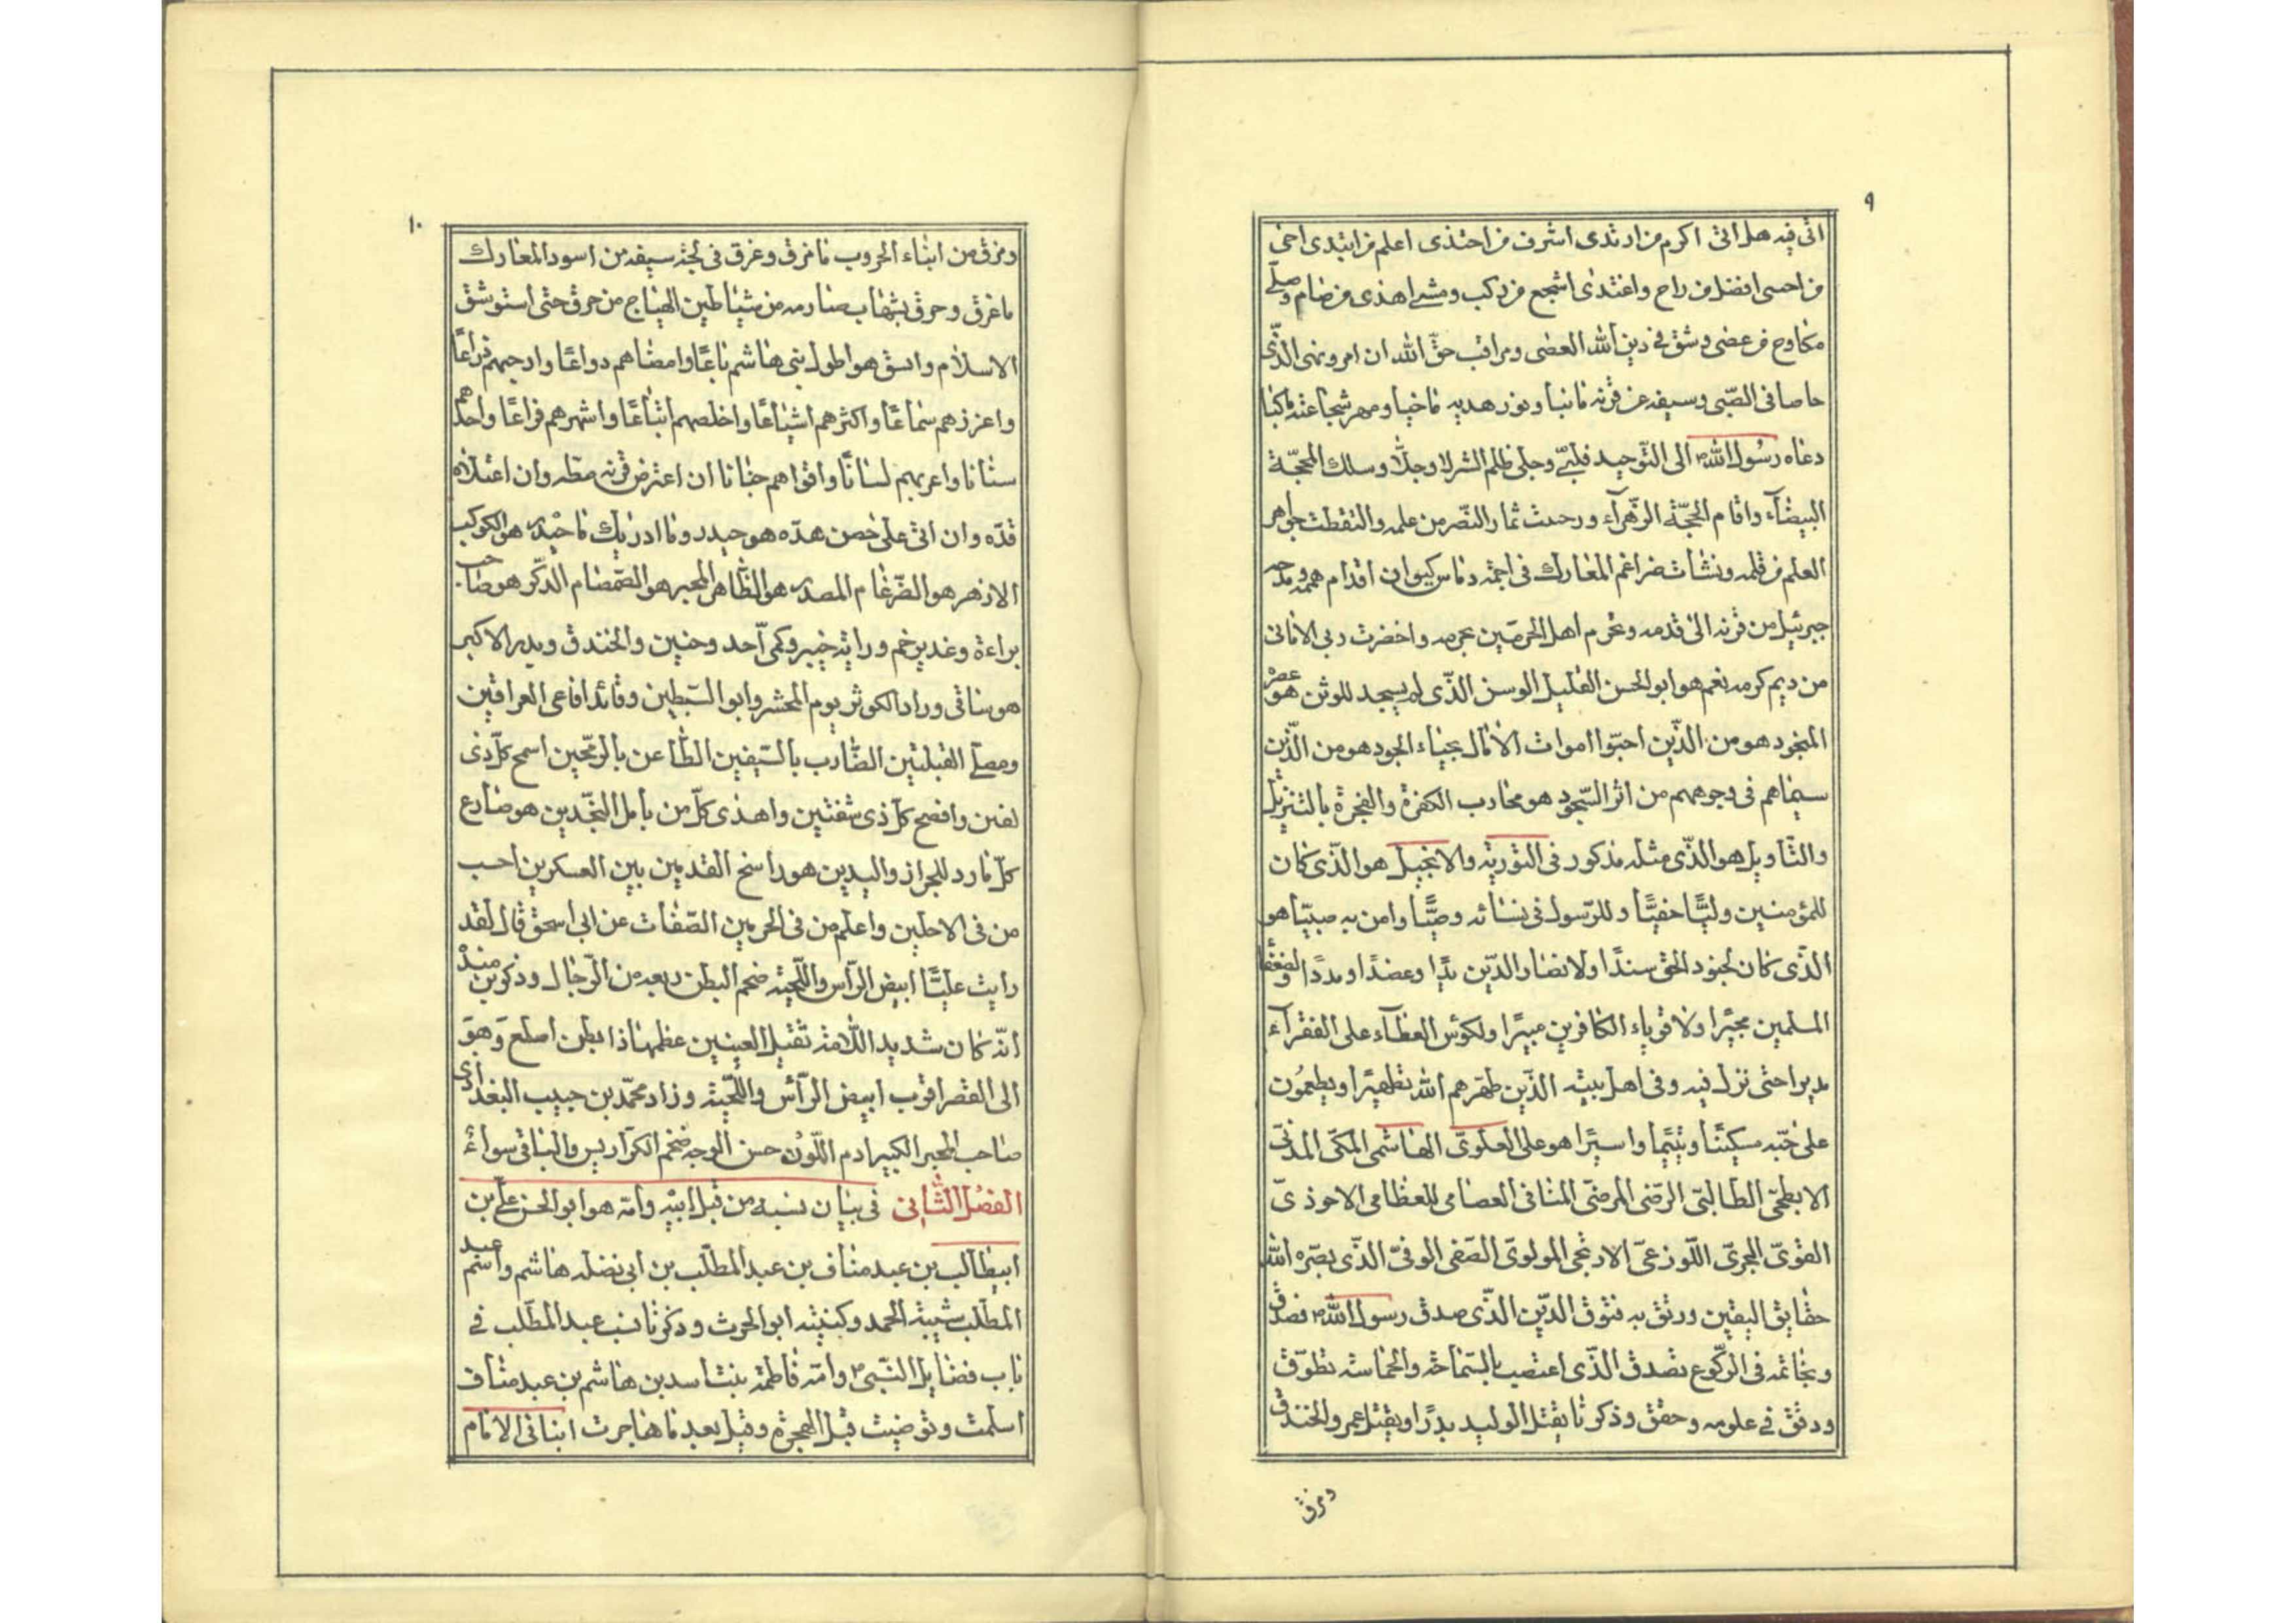 ٩
اتى فيه هل اتى اكرم من ارتدى اشرف من احتذى اعلم من ابتدى احى
من احسى افضل من راح واغتدى اشجع من ركب ومشى اهذى من صام وصلّى
مكاوح من عصى وشق فى دين الله العصى ومراقب حقّ الله ان امر ونهى الذّى
ما صا فى الصّبى وسيفه عن قرنه ما نبا ونور هديه ما خبا ومهر شجاعته ما كبا
دعاه رسول الله الى التّوحيد فلبّى وجلى ظلم الشرك وجلّا وسلك المحجّة
البيضآء واقام الحجّة الزّهرآء و ثمار النّصر من علمه والتقطت جواهر
العلم من قلمه ونشات ضراغم المعارك فى اجمة كيوان اقدام هممه ومدحه
جبرئيل من قرنه الى قدمه وعرم اهل الحرمين بحرمه واخضرت ربى الامانى
من ديم كرمه نعم هو ابو الحسن القليل الوسن الذّى لم يسجد للوثن هو عصرْ
المنجود هو من الذّين احبّوا اموات الآمال بحياء الجود هو من الذّين
سيماهم فى وجوههم من اثر السّجود هو محارب الكفرة والفجرة بالتنزيل
والتّاويل هو الذّى مثله مذكور فى التورية والانجيل هو الذّى كان
للمؤمنين وليًّا حفيًّا وللرّسول فى نسائه وصيًّا وامن به صبيّا هو
الذّى كان لجنود الحق سندًا ولانصار الدّين يدًا وعضدًا ومددًا ولضعفا
المسلمين مجيرًا ولاقوياء الكافرين مبيرًا ولكؤس العطآء على الفقرآء
مديرا حتى نزل فيه وفى اهل بيته الذّين طهّرهم الله تطهيرًا ويطعمُون
على حبّه مسكينًا ويتيمًا واسيرًا هو على العلوىّ الهاشمى المكىّ المدنىّ
الابطحىّ الطالبىّ الرّضى المرضىّ المنافى العصامى للعظامى الاحوذىّ
القوىّ الجرىّ اللّوذعىّ الاريحى المولوىّ الصّفى الوفىّ الذّى بصّره الله
حقايق اليقين ورتق به فتوق الدّين الذّى صدق رسول الله فصدّق
وبخاتمه فى الرّكوع تصدق الذّى اعتصب بالسّماحة والحماسة تطوّق
ودقّق فى علومه وحقق وذكرنا بقتل الوليد بدرًا وبقتل عمرو الخندق
ومزق
١٠
ومزق من ابناء الحروب ما مزق وغرق فى لجّة سيفه من اسود المعارك
ما غرق وحرق بشهاب صارمه من شياطين الهياج من حرق حتى استوثق
الاسلام واتسق هو اطول بنى هاشم باعًا وامضاهم دواعًا وارحبهم ذراعًا
واعززهم سماعًا واكثرهم اشياعًا واخلصهم اتباعًا واشهرهم قراعًا واحدّهم
سنانا واعربهم لسانًا واقواهم جنانا ان اعترض قرنه قطّه وان اعتلاه
قدّه وان اتى على حصن هدّه هو حيدر وما ادريك ما حيدر هو الكوكب
الازهر هو الضّرغام المصدر هو الطّاهر المحبر هو الصّمصام الذّكر هو صاحب
براءة وغدير خم وراية خيبر وكمى احد وحنين والخندق وبدر الاكبر
هو ساقى وراد الكوثر يوم المحشر وابو السّبطين وقائد افاعى العراقين
ومصلّى القبلتين الضّارب بالسّيفين الطّاعن بالرمحين اسمح كلّ ذى
لفين وافصح كلّ ذى شفتين واهدى كلّ من تامل النّجدين هو ضارع
كلّ مارد للجراز واليدين هو راسخ القدمين بين العسكرين احب
من فى الاحلين واعلم من فى الحرمين الصّفات عن ابى اسحق قال لقد
رايت عليًّا ابيض الرّأس واللّحية ضخم البطن ربعه من الرّجال وذكر بن مندْ
انّه كان شديد الادمة ثقيل العينين عظمها ذا بطن اصلع وَهوَ
الى القصر اقرب ابيض الرّأس واللّحية وزاد محمّد بن حبيب البغدادى
صاحب المحبر الكبير ادم اللّون حسن الوجه ضخم الكراريس والباقى سواءْ
الفصُل الثّانى فى بيان نسبه من قبل ابيْه وامّه هو ابو الحسن علىّ بن
ابيطالب بن عبد مناف بن عبد المطلّب بن ابى نضله هاشم واسم عبد
المطلّب شيبة الحمد وكنيته ابو الحرث وذكرنا نسب عبد المطلب فى
باب فضايل النّبى وامّه فاطمة بنت اسد بن هاشم بن عبد مناف
اسلمت وتوفيت قبل الهجرة وقيل بعد ما هاجرت ابنا فى الانام